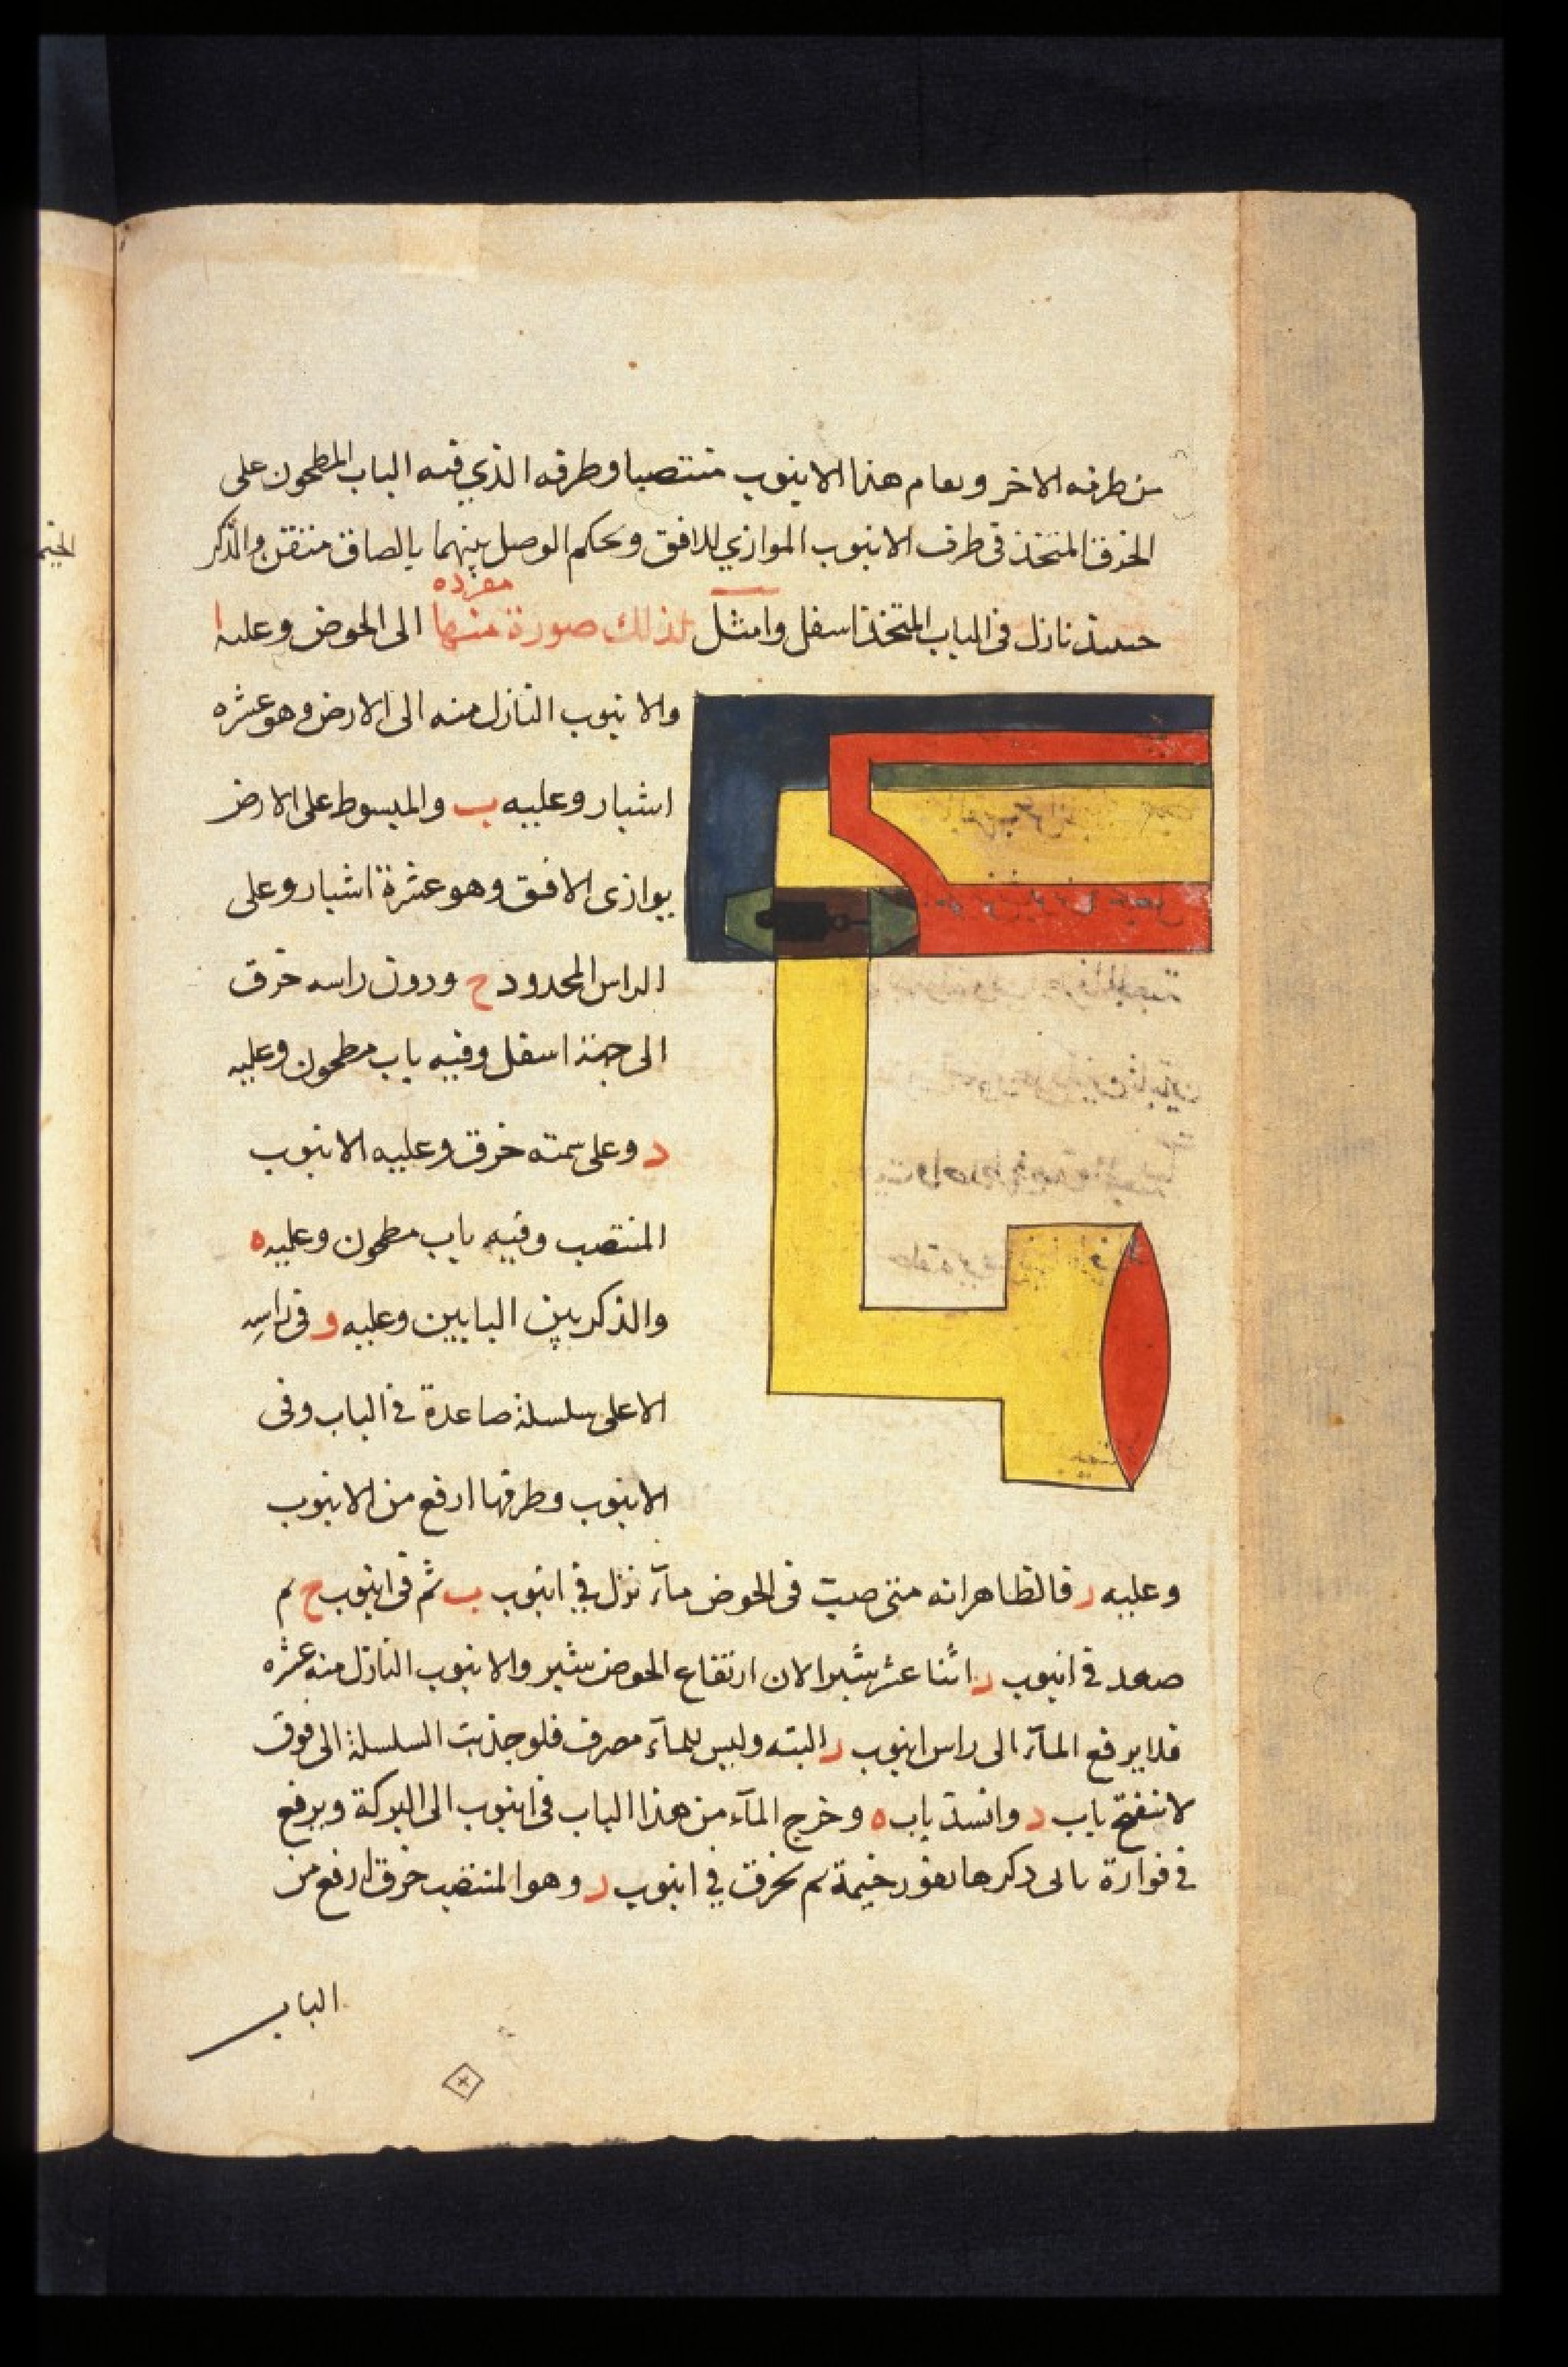 من طرفه الاخر ويقام هذا الانبوب منتصبا وطرفه الذي فيه الباب المطحون على
الخرق المتخذ في طرف الانبوب الموازي للافق ويحكم الوصل بينهما بالصاق متقن والذكر
مفرده
حينئذ نازل في الباب المتخذ اسفل وامثل لذلك صورة منها الى الحوض وعليه ا
والانبوب النازل منه الى الارض وهو عشره
اشبار وعليه ب والمبسوط على الارض
يوازى الافق وهو عشرة اشبار وعلى
الراس المحدود ح ودون راسه خرق
الى جهة اسفل وفيه باب مطحون وعليه
د وعلى سمته خرق وعليه الانبوب
المنتصب وفيه باب مطحون وعليه ه
والذكر بين البابين وعليه و في راسه
الاعلى سلسلة صاعدة في الباب وفى
الانبوب وطرفها ارفع من الانبوب
وعليه ر فالظاهر انه متى صبت فى الحوض مآء نزل في انبوب ب ثم فى انبوب ح ثم
صعد في انبوب ر اثنا عشر شبرا لان ارتفاع الحوض شبر والانبوب النازل منه عشره
فلا يرفع المآء الى راس انبوب ر البته وليس للمآء مصرف فلو جذبت السلسلة الى فوق
لانفتح باب د وانسد باب ه وخرج المآء من هذا الباب فى انبوب الى البركة ويرفع
في فوارة ياتى ذكرها بفور خيمة ثم يخرق في انبوب ر وهو المنتصب خرق ارفع من
الباب